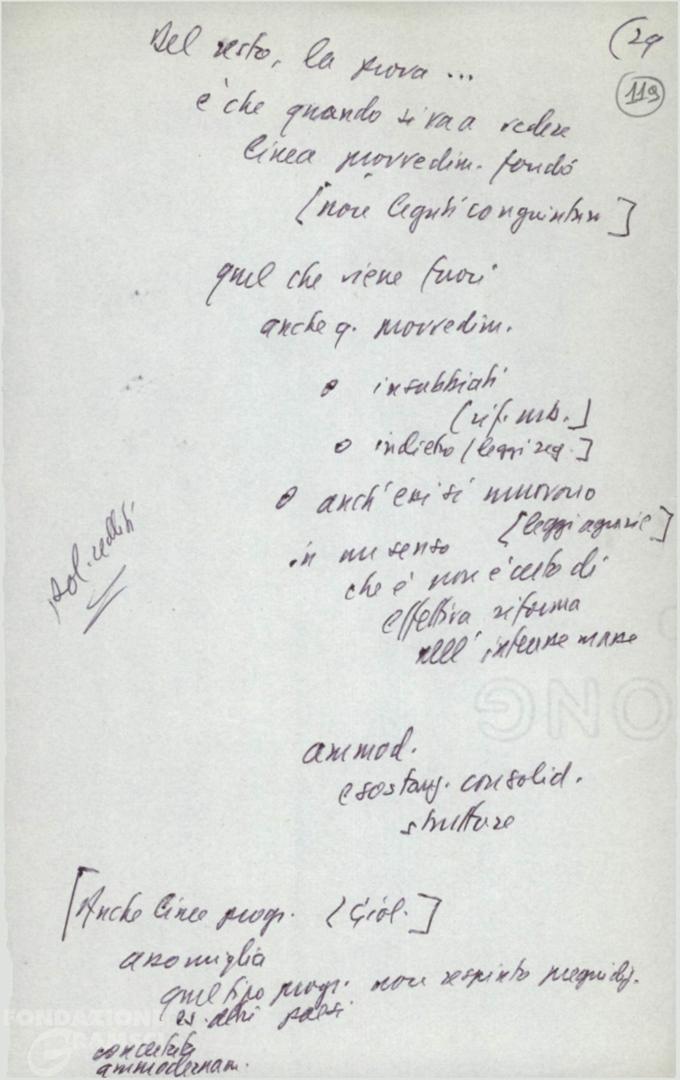 (24
119
Del resto, la prova ...
è che quando si va a vedere
linea provvedim. fondo
[non legati congiuntura]
quel che viene fuori
anche q. provvedim.
o insabbiati
[rif. urb.]
o indietro [leggi reg.]
o anch'essi si muovono
[leggi agrarie]
in un senso
che è non è certo di
effettiva riforma
nell'interesse masse
pol. redditi
ammod.
e sostanz. consolid.
strutture
[Anche linee progr. (Giol.]
assomiglia
quel tipo progr. non respinto pregiudiz.
es. altri paesi
concertata
ammodernam.
FONDAZIONE
GRAMSCI
ONG